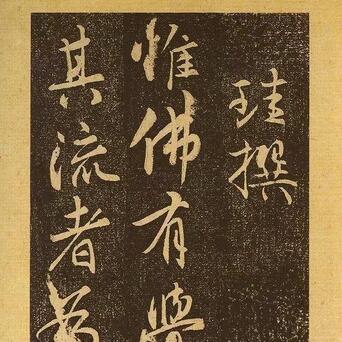 珪撰
惟佛有
其流者